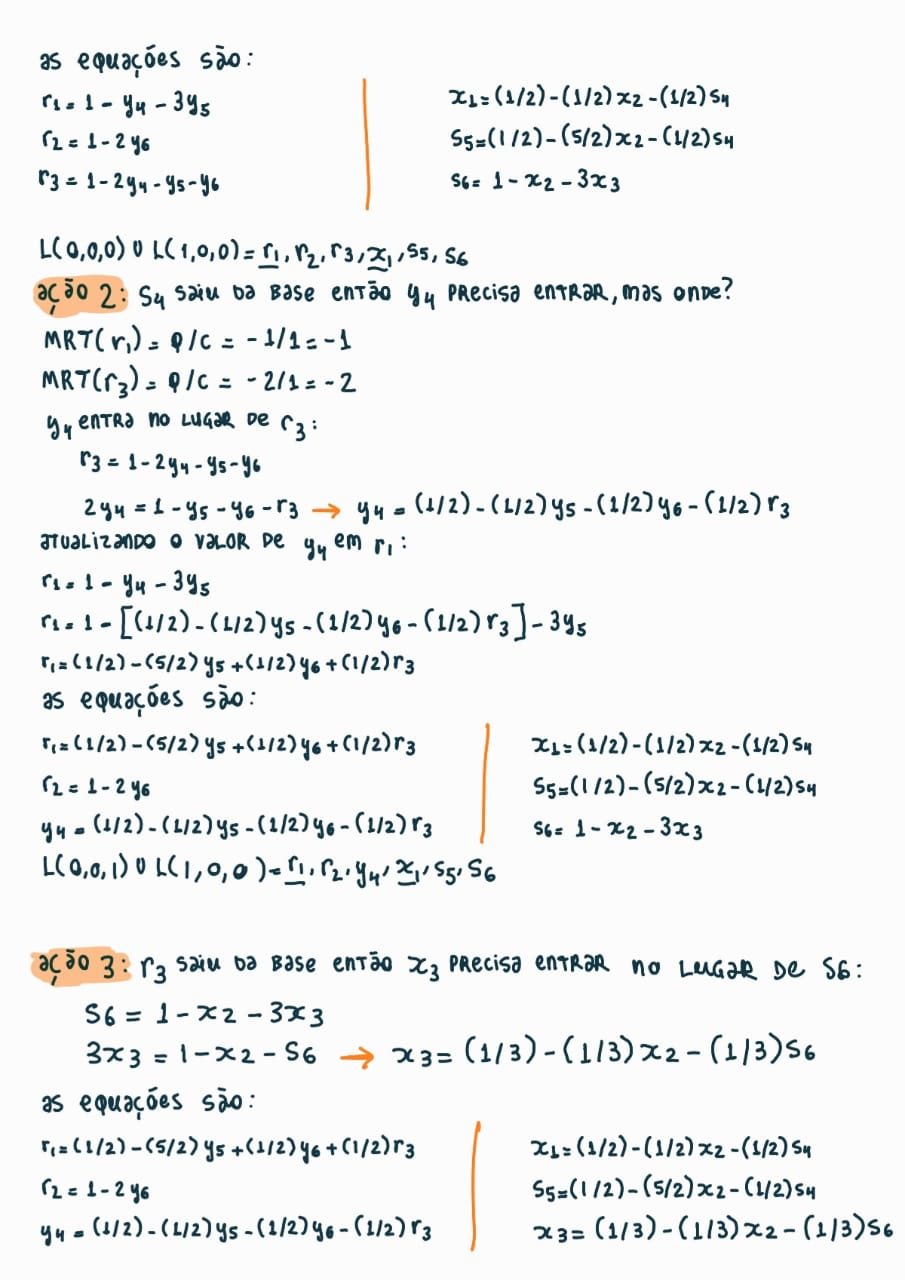 as equações são:
r1 = 1 - y4 - 3y5
r2 = 1 - 2y6
r3 = 1 - 2y4 - y5 - y6
x1 = (1/2) - (1/2)x2 - (1/2)s4
s5 = (1/2) - (5/2)x2 - (1/2)s4
s6 = 1 - x2 - 3x3
L(0,0,0) U L(1,0,0) = r1, r2, r3, x1, s5, s6
ação 2: s4 saiu da base então y4 precisa entrar, mas onde?
MRT(r1) = q/c = -1/1 = -1
MRT(r3) = q/c = -2/1 = -2
y4 entra no lugar de r3:
r3 = 1 - 2y4 - y5 - y6
2y4 = 1 - y5 - y6 - r3 → y4 = (1/2) - (1/2)y5 - (1/2)y6 - (1/2)r3
atualizando o valor de y4 em r1:
r1 = 1 - y4 - 3y5
r1 = 1 - [(1/2) - (1/2)y5 - (1/2)y6 - (1/2)r3] - 3y5
r1 = (1/2) - (5/2)y5 + (1/2)y6 + (1/2)r3
as equações são:
r1 = (1/2) - (5/2)y5 + (1/2)y6 + (1/2)r3
r2 = 1 - 2y6
y4 = (1/2) - (1/2)y5 - (1/2)y6 - (1/2)r3
x1 = (1/2) - (1/2)x2 - (1/2)s4
s5 = (1/2) - (5/2)x2 - (1/2)s4
s6 = 1 - x2 - 3x3
L(0,0,1) U L(1,0,0) = r1, r2, y4, x1, s5, s6
ação 3: r3 saiu da base então x3 precisa entrar no lugar de s6:
s6 = 1 - x2 - 3x3
3x3 = 1 - x2 - s6 → x3 = (1/3) - (1/3)x2 - (1/3)s6
as equações são:
r1 = (1/2) - (5/2)y5 + (1/2)y6 + (1/2)r3
r2 = 1 - 2y6
y4 = (1/2) - (1/2)y5 - (1/2)y6 - (1/2)r3
x1 = (1/2) - (1/2)x2 - (1/2)s4
s5 = (1/2) - (5/2)x2 - (1/2)s4
x3 = (1/3) - (1/3)x2 - (1/3)s6